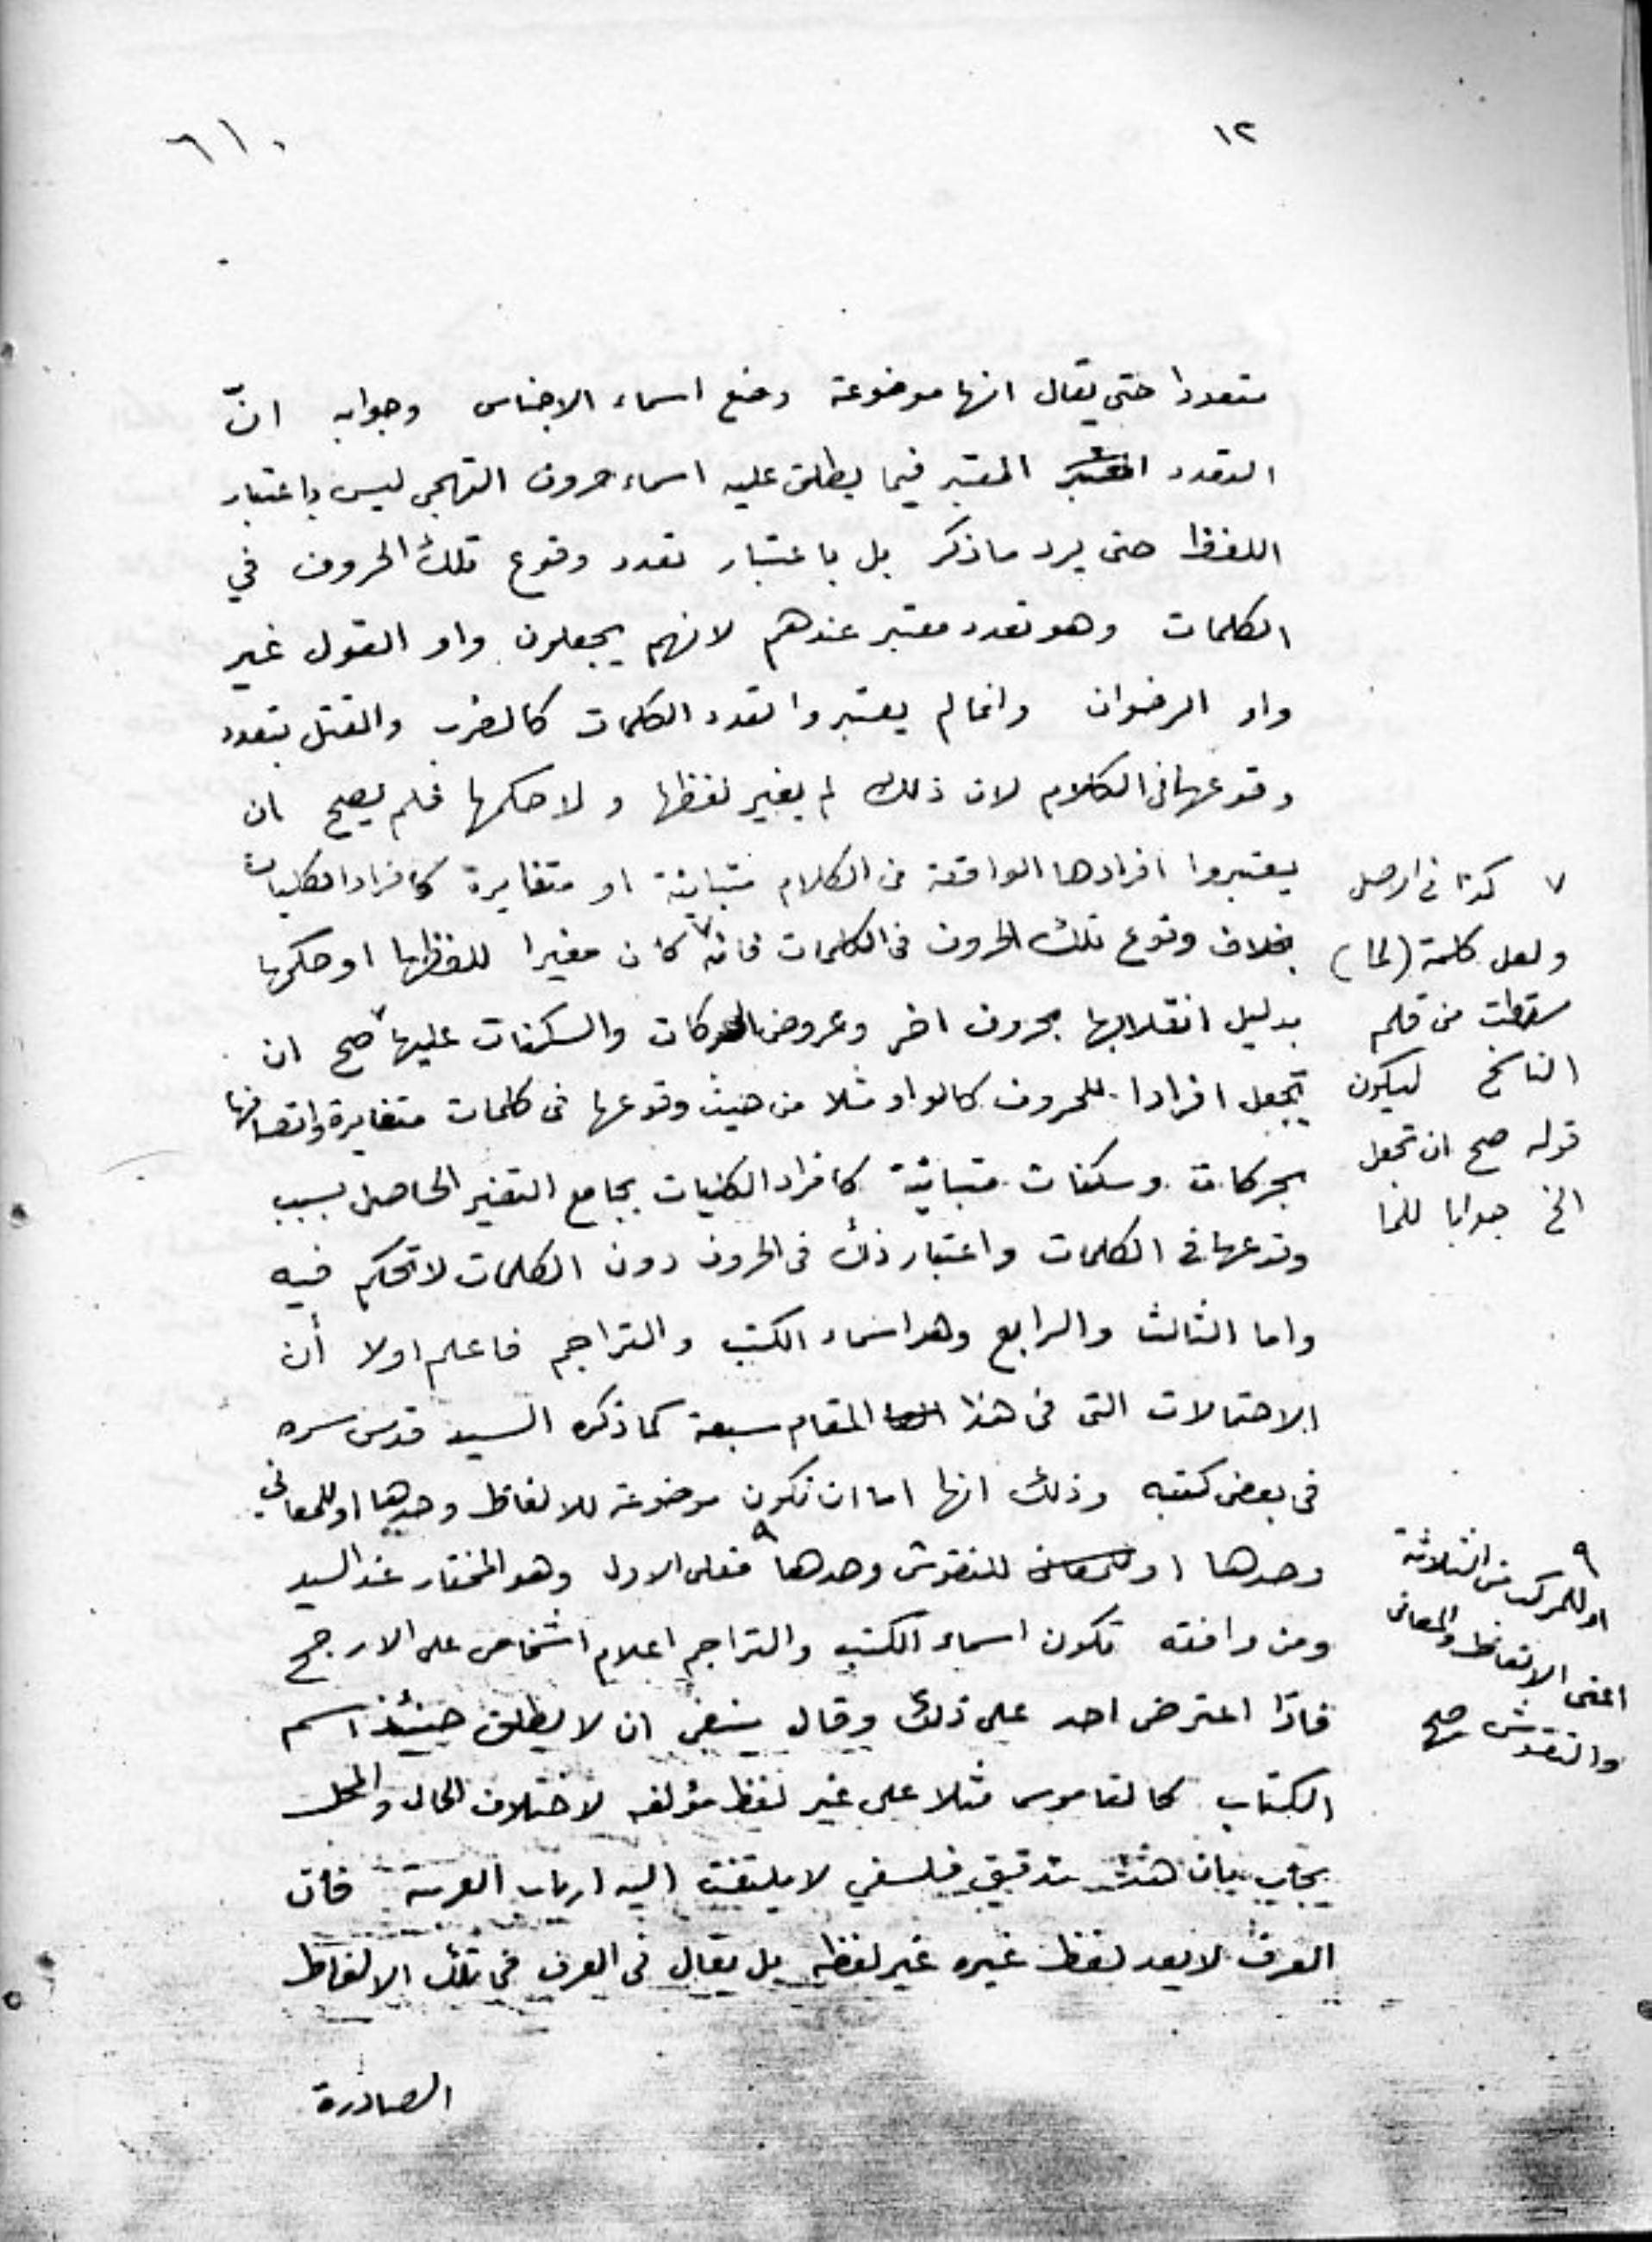 ١٢
٦١٠
متعددا حتى يقال انها موضوعة وضع اسماء الاجناس وجوابه انّ
التعدد المعتبر فيما يطلق عليه اسماء حروف التهجى ليس باعتبار
اللفظ حتى يرد ما ذكر بل باعتبار تعدد وقوع تلك الحروف في
الكلمات وهو تعدد معتبر عندهم لانهم يجعلون واو القول غير
واو الرضوان وانما لم يعتبروا تعدد الكلمات كالضرب والقتل بتعدد
وقوعها فى الكلام لان ذلك لم يغير لفظها ولا حكمها فلم يصح ان
يعتبروا افرادها الواقعة فى الكلام متباينة او متغايرة كافراد الكليات
بخلاف وقوع تلك الحروف فى الكلمات فانه٧ كان مغيرا للفظها او حكمها
بدليل انقلابها بحروف اخر وعروض الحركات والسكنات عليها٧ صح ان
تجعل افرادا للحروف كالواو مثلا من حيث وقوعها فى كلمات متغايرة واتصافها
بحركات وسكنات متباينة كافراد الكليات بجامع التغير الحاصل بسبب
وقوعها فى الكلمات واعتبار ذلك فى الحروف دون الكلمات لا تحكم فيه
واما الثالث والرابع وهو اسماء الكتب والتراجم فاعلم اولا أن
الاحتمالات التى فى هذا المقام سبعة كما ذكره السيد قدس سره
فى بعض كتبه وذلك انها اما ان تكون موضوعة للالفاظ وحدها او للمعانى
وحدها او للنقوش وحدها٩ فعلى الاول وهو المختار عند السيد
ومن وافقه تكون اسماء الكتب والتراجم اعلام اشخاص على الارجح
فاذا اعترض احد على ذلك وقال ينبغى ان لا يطلق حينئذ اسم
الكتاب كالقاموس مثلا على غير لفظ مؤلفه لاختلاف الحال والمحل
يجاب بان هذا تدقيق فلسفي لا يلتفت اليه ارباب العربية فان
العرف لا يعد لفظ غيره غير لفظه بل يقال فى العرف فى تلك الالفاظ
الصادرة
٧ كذا فى الاصل
ولعل كلمة (لما)
سقطت من قلم
الناسخ ليكون
قوله صح ان تجعل
الخ جوابا للما
٩
او للمركب من الثلاثة
اعنى الالفاظ والمعانى
والنقوش صح